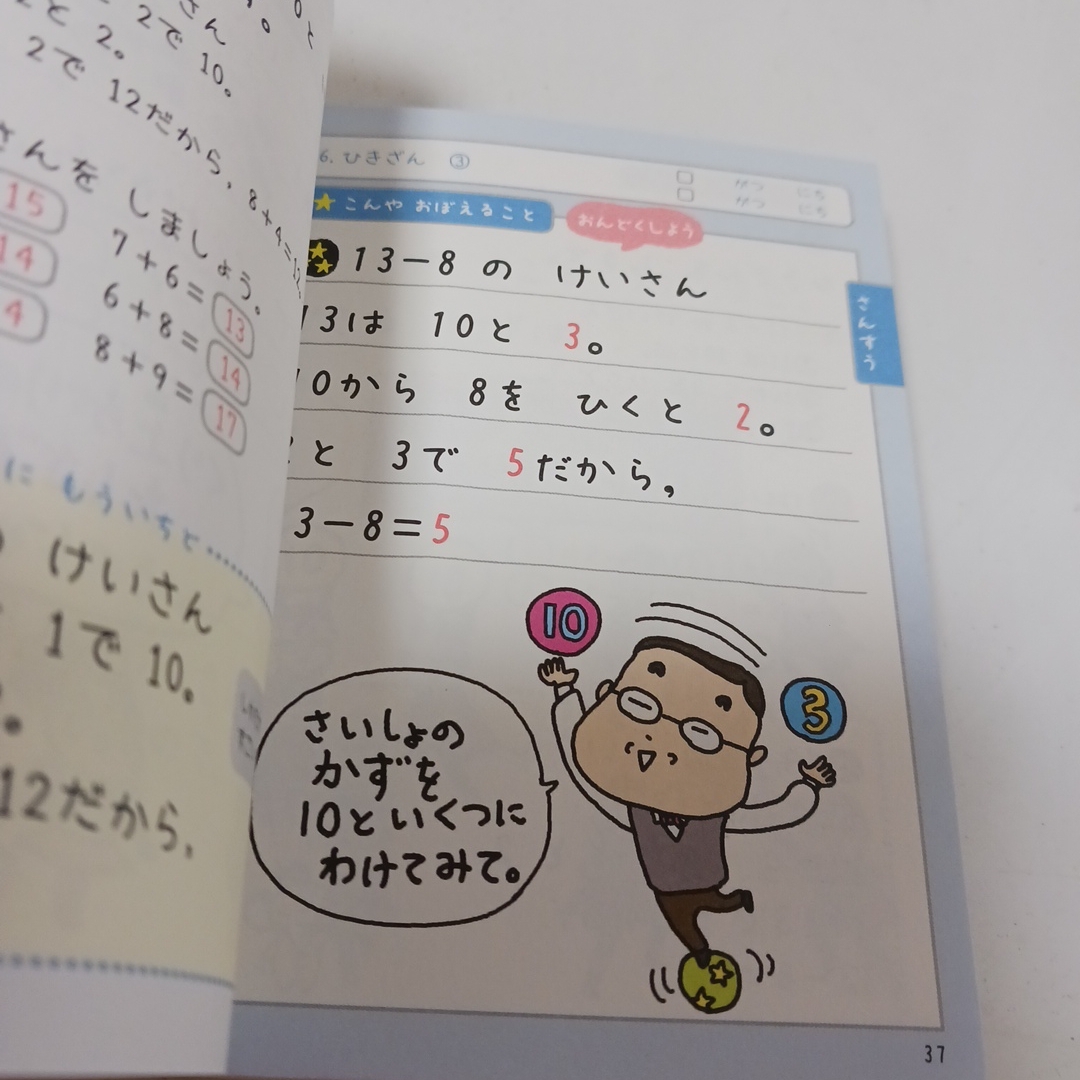 2で 10。
と 2。
2で 12だから, 8+4=12。
さんを しましょう。
15
14
4
7+6=13
6+8=14
8+9=17
に もういちど
けいさん
1で 10。
12だから,
6. ひきざん ③
がつ にち
がつ にち
こんや おぼえること
おんどくしよう
13-8 の けいさん
13は 10と 3。
10から 8を ひくと 2。
と 3で 5だから,
3-8=5
さんすう
10
3
さいしょの
かずを
10といくつに
わけてみて。
37